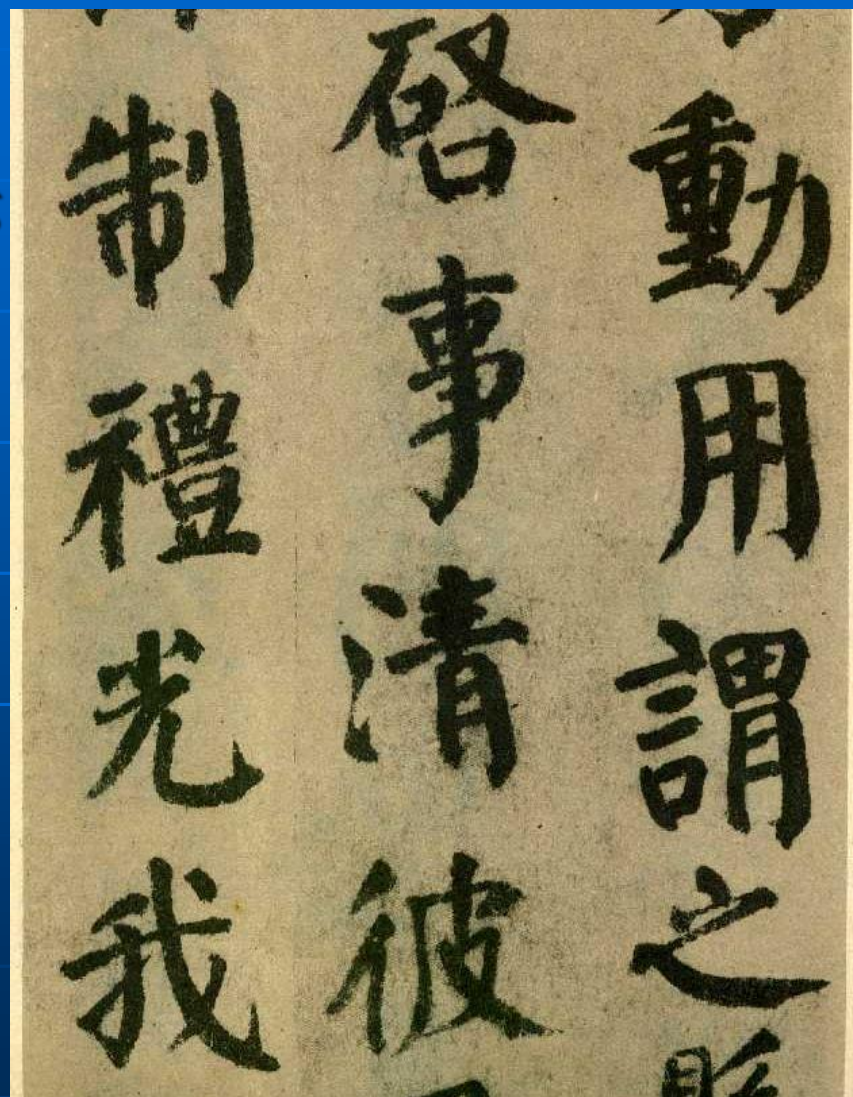 動用謂之
啓事清彼
制禮光我